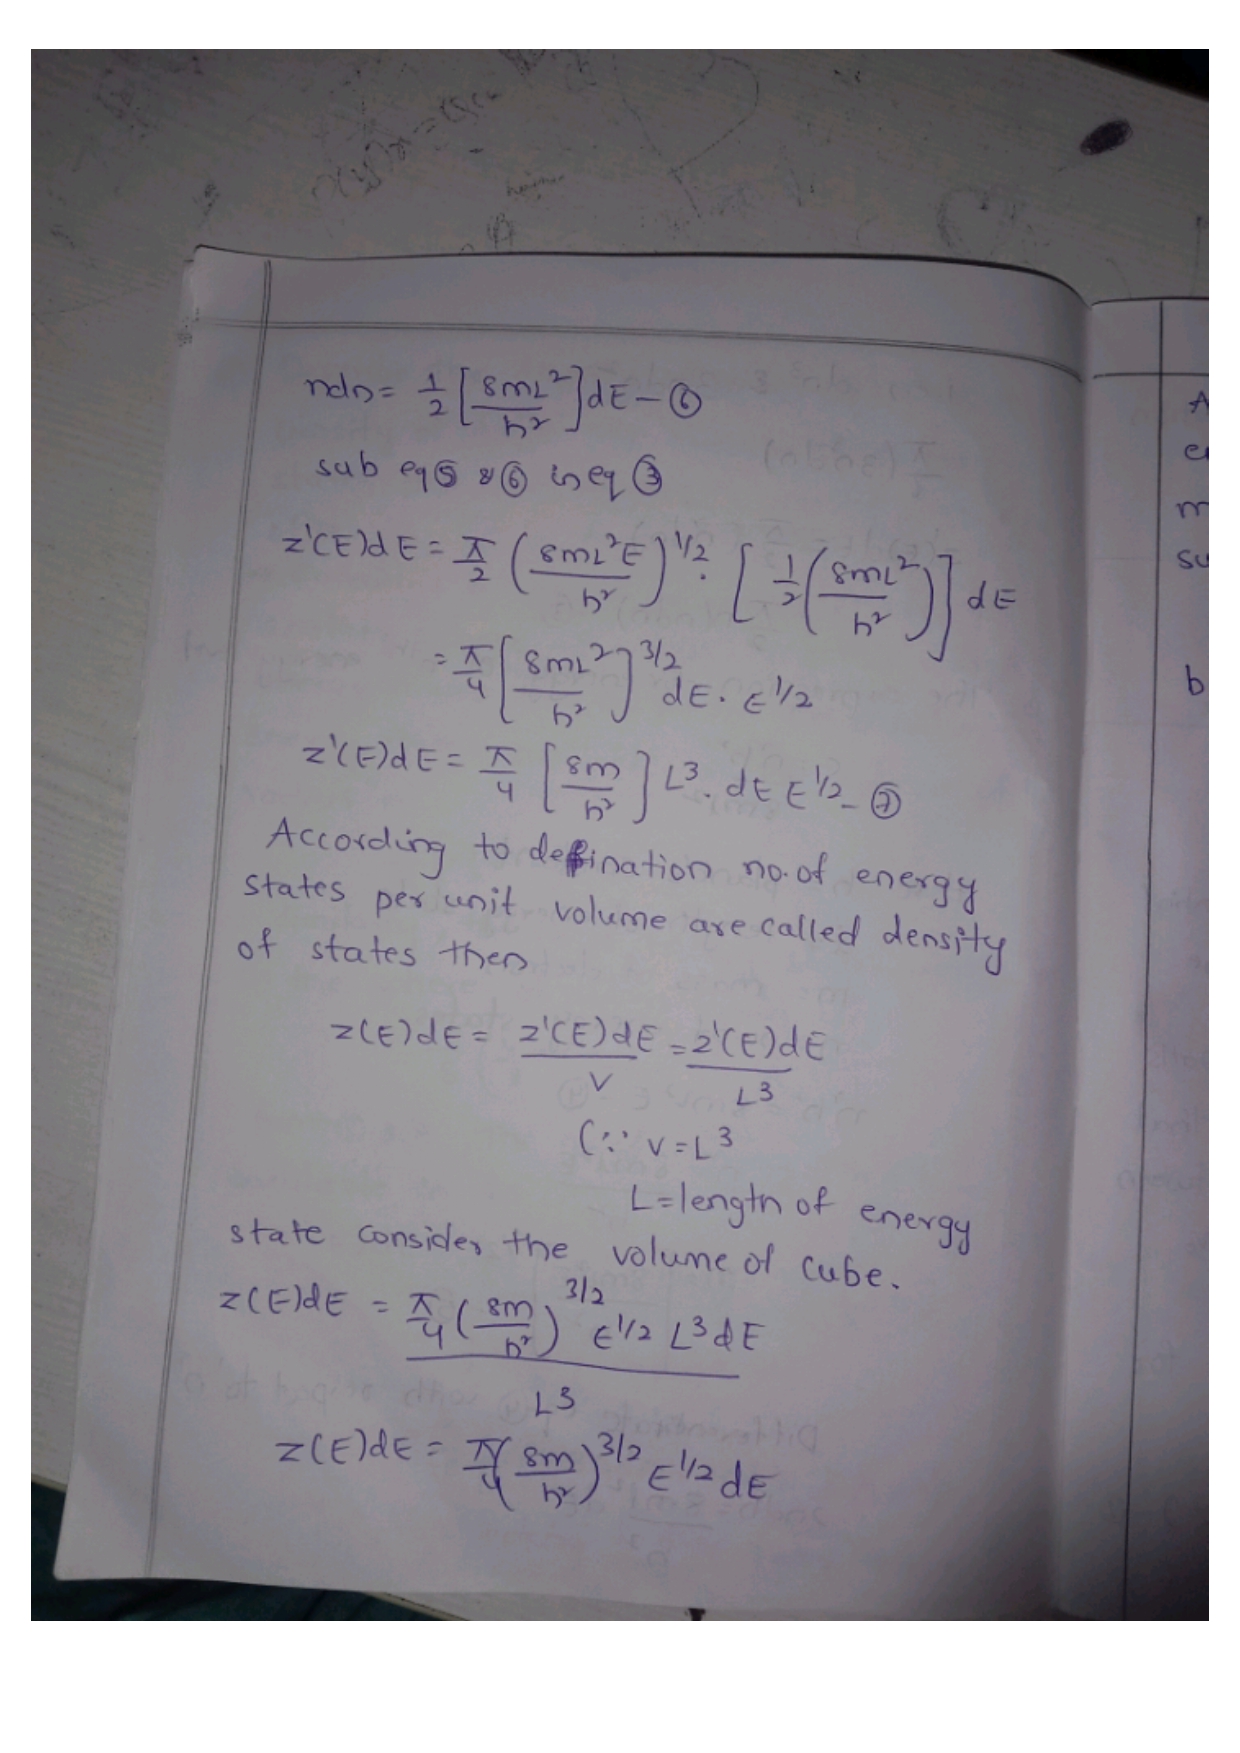 ndn = 1/2 [8mL²/h²] dE - ⑥
sub eq ⑤ & ⑥ in eq ③
z'(E)dE = π/2 (8mL²E/h²)^1/2 . [1/2 (8mL²/h²)] dE
= π/4 [8mL²/h²]^3/2 dE. E^1/2
z'(E)dE = π/4 [8m/h²] L³. dE E^1/2 - ⑦
According to defination no. of energy
states per unit volume are called density
of states then
z(E)dE = z'(E)dE/V = z'(E)dE/L³
(∵ V = L³
L = length of energy
state consider the volume of cube.
z(E)dE = π/4 (8m/h²)^3/2 E^1/2 L³ dE / L³
z(E)dE = π/4 (8m/h²)^3/2 E^1/2 dE
A
m
su
b